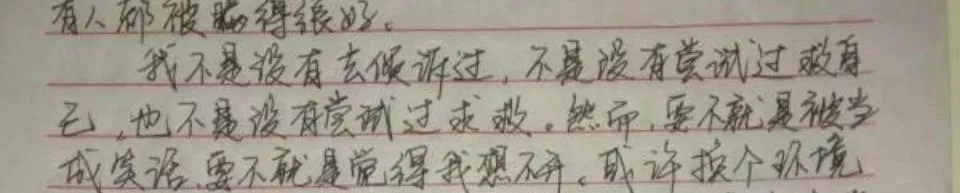 有人都被瞒得很好。
我不是没有去倾诉过,不是没有尝试过救自
己,也不是没有尝试过求救。然而,要不就是被当
成笑话,要不就是觉得我想不开。或许换个环境